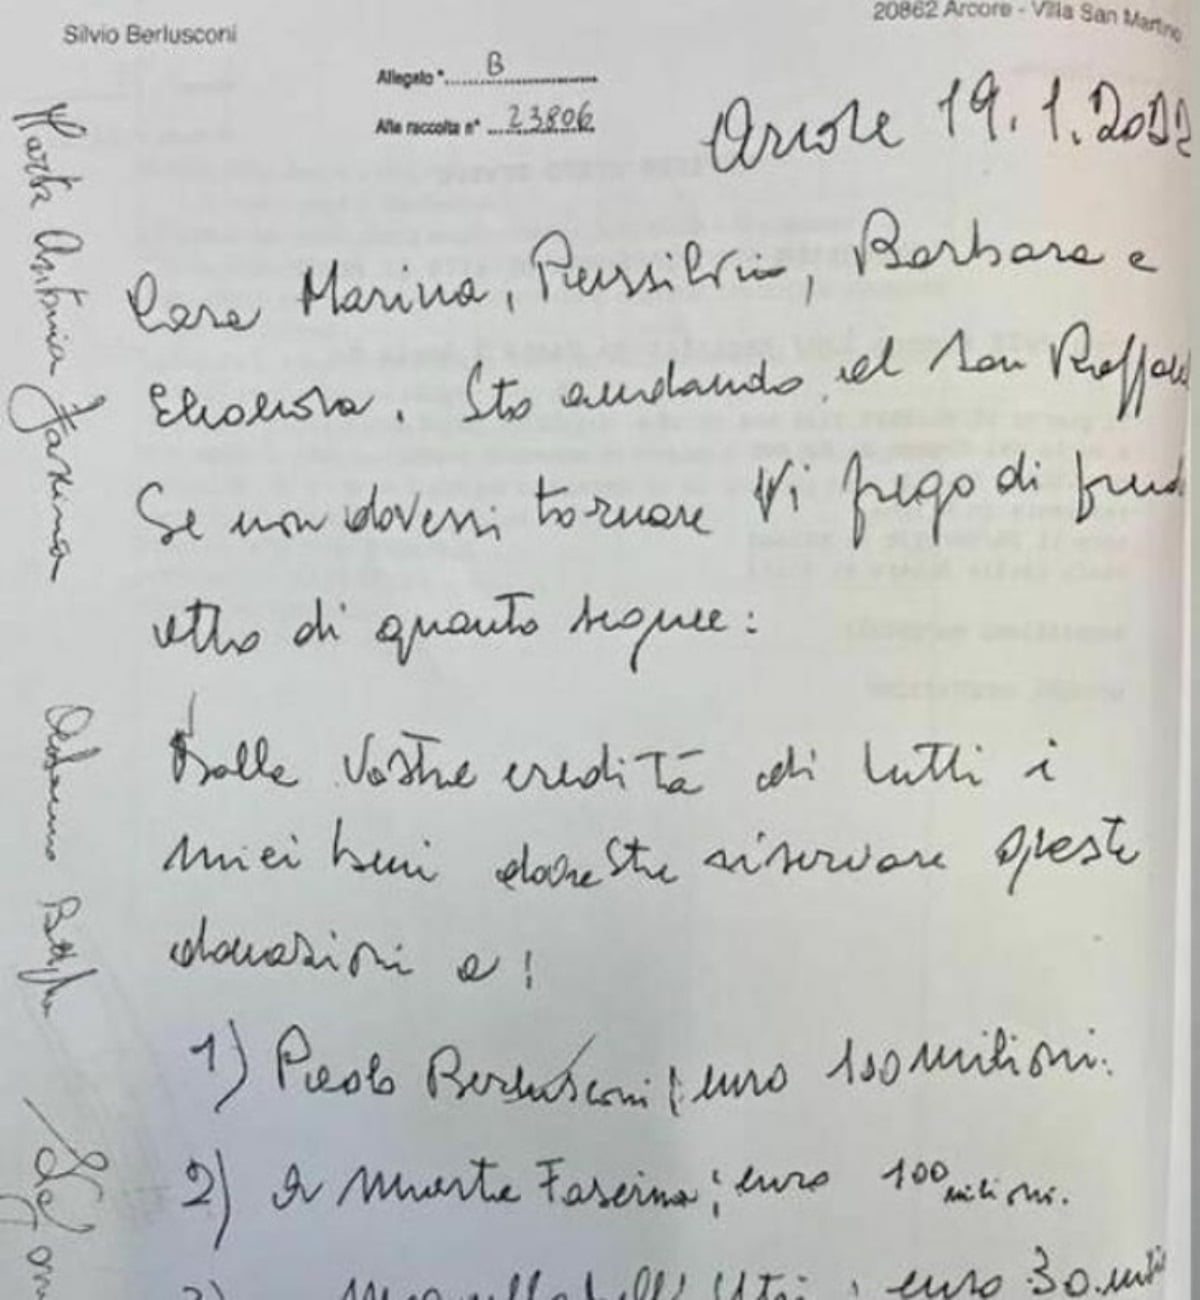 Silvio Berlusconi
20862 Arcore - Villa San Martino
Allegato "B
Alla raccolta n° 23806
Arcore 19.1.2022
Cara Marina, Piersilvio, Barbara e
Eleonora, Sto andando al San Raffaele
Se non dovessi tornare Vi prego di prend
atto di quanto segue:
Dalla Vostra eredità di tutti i
miei beni dovreste riservare queste
donazioni a:
1) Paolo Berlusconi: euro 100 milioni.
2) a Marta Fascina; euro 100 milioni.
3) a Marcello dell'Utri: euro 30 mili
Marta Antonia Fascina